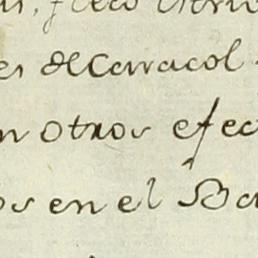 es de Carracol
n otros efec
os en el Ba